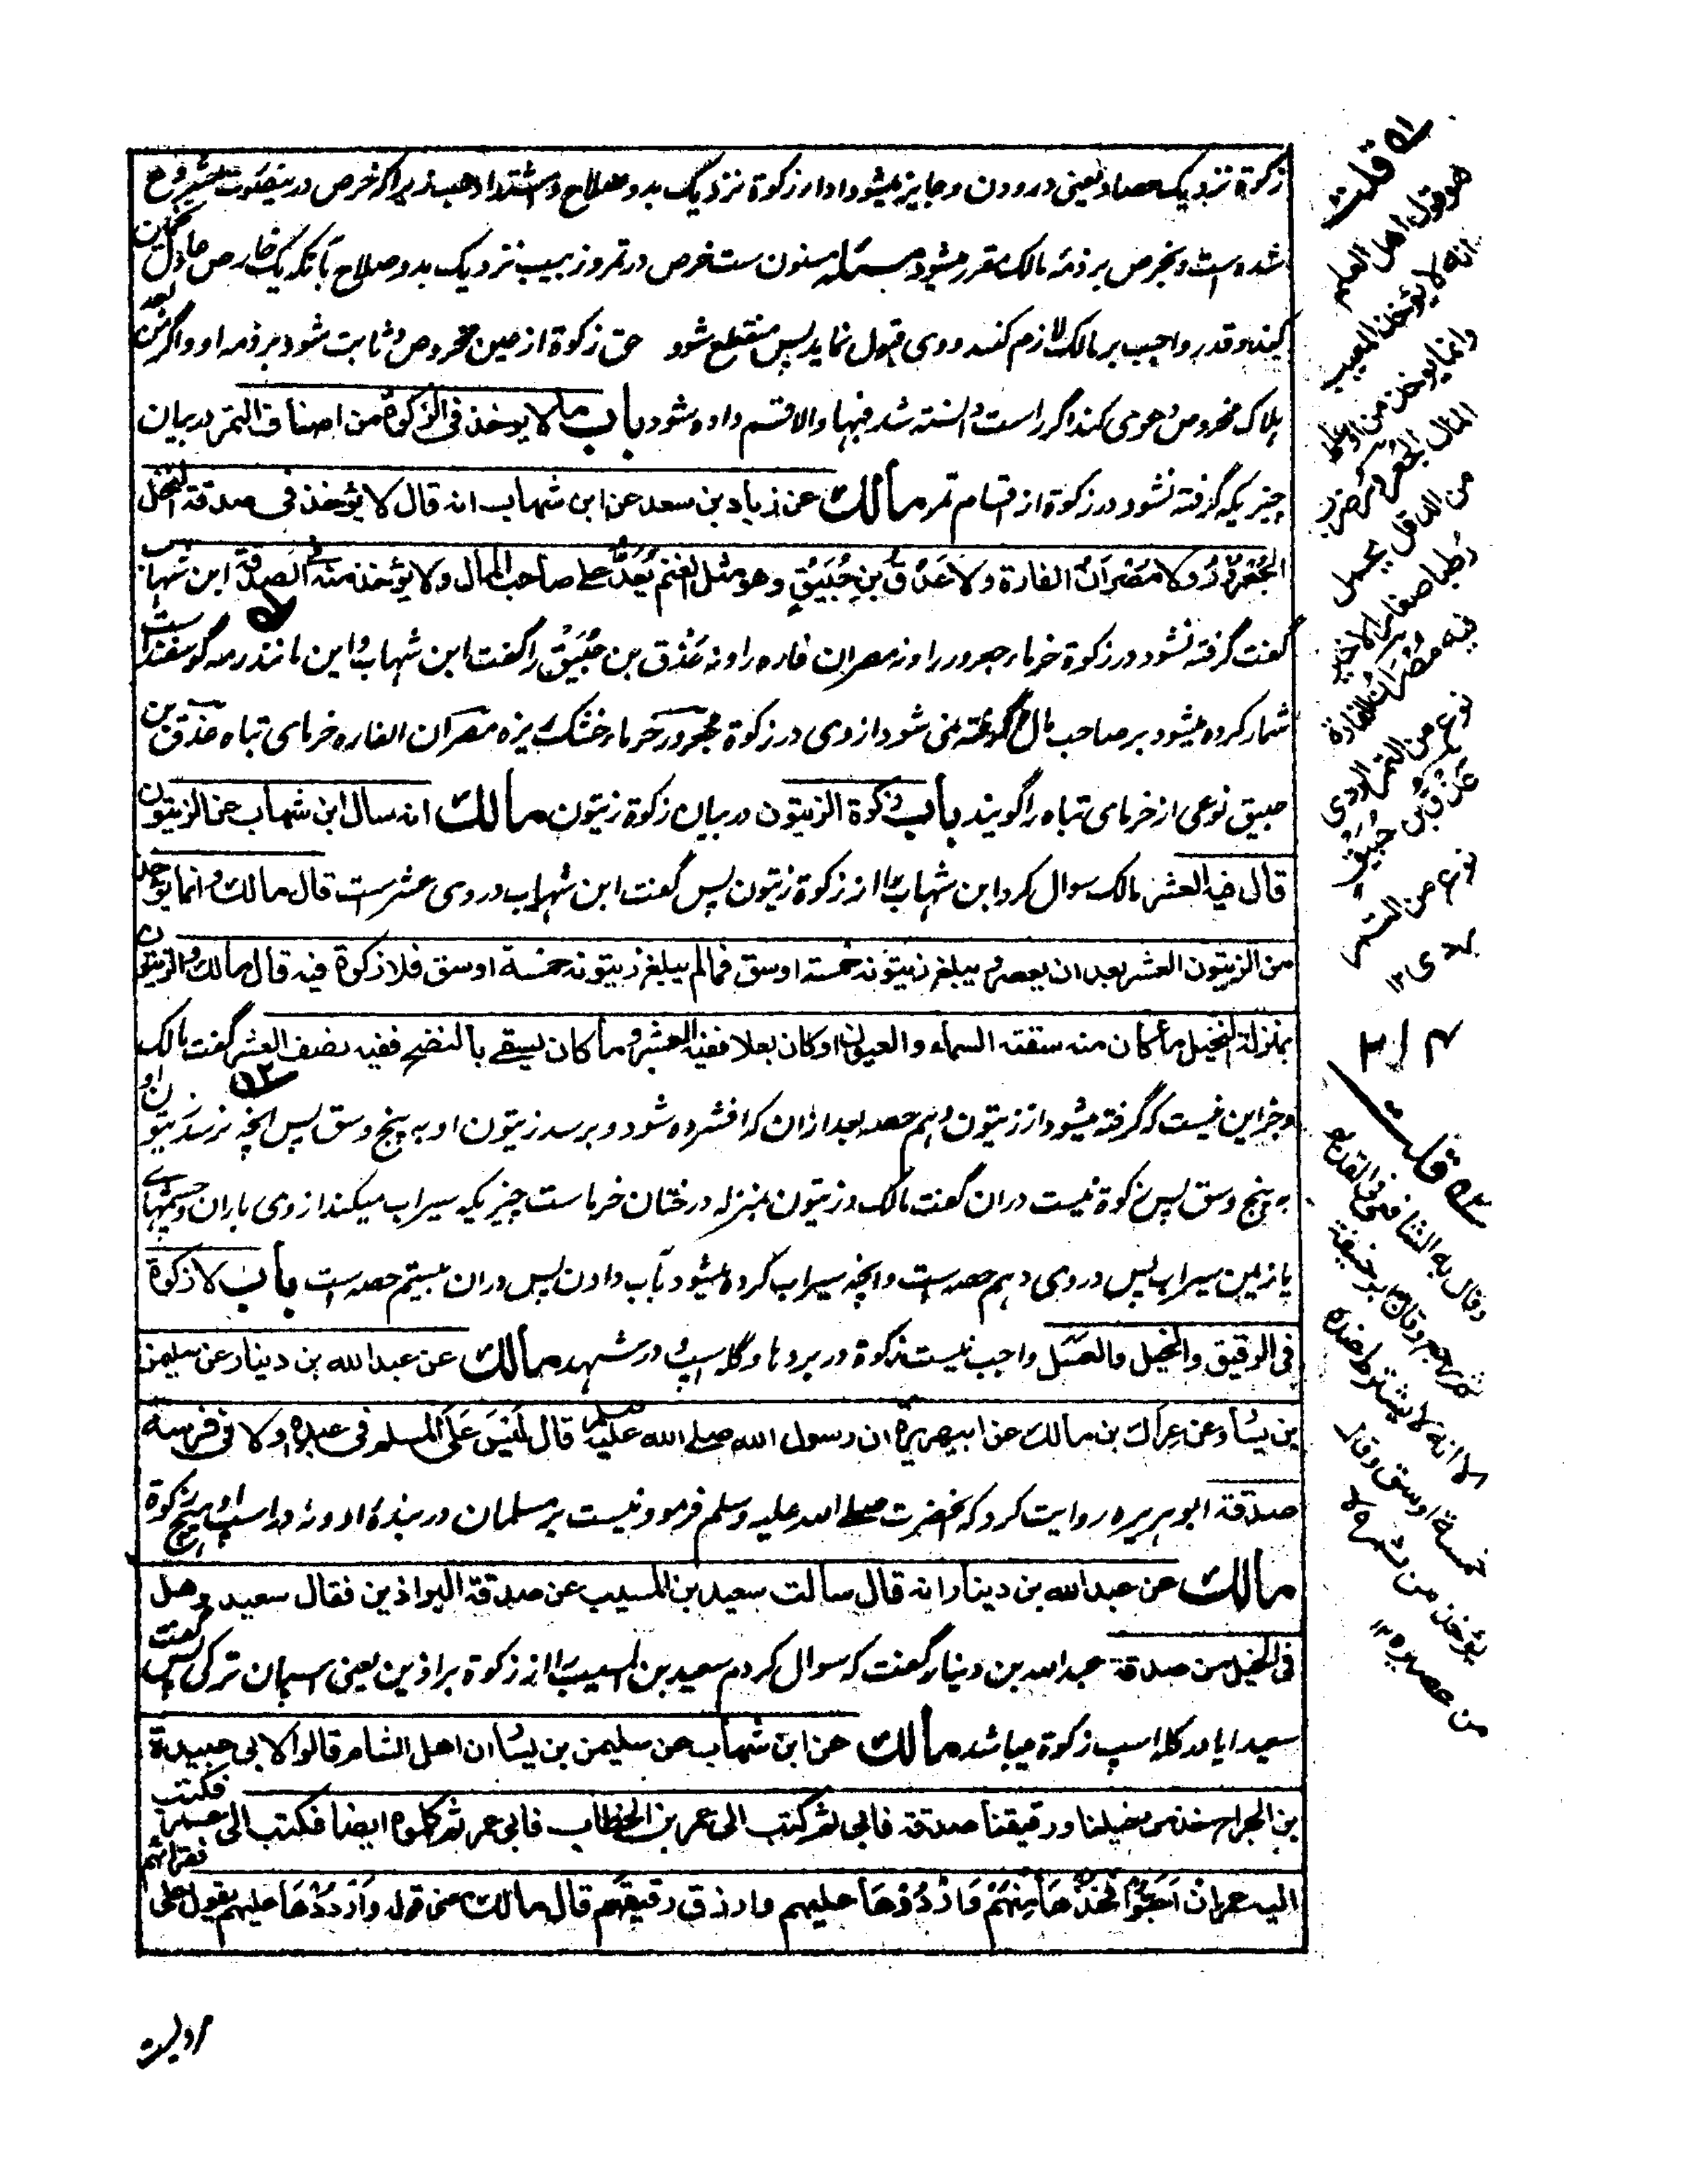 زکوة نزدیک حصاد یعنی درودن و جایز میشود ادار زکوة نزدیک بدو صلاح و اشتداد حب زیرا که خرص درینصورت مشروع
شده است و بخرص بر ذمهٔ مالک مقرر میشود مسئله مسنون ست خرص در تمر و زبیب نزدیک بدو صلاح بآنکه یک خارص عادل تخمین
کند و قدر واجب بر مالک لازم کند و وی قبول نماید پس منقطع شود حق زکوة از عین مخروص و ثابت شود بر ذمه او و اگر بعد ازین
هلاک مخروص دعوی کند اگر راست دانسته شد فبها والا قسم داده شود باب مالا یوخذ فی الزکوة من اصناف التمر در بیان
چیزیکه گرفته نشود در زکوة از اقسام تمر مالک عن زیاد بن سعد عن ابن شهاب انه قال لا یؤخذ فی صدقة النخل
الجُعرور ولا مصران الفارة ولا عذق بن حبیق وهو مثل الغنم یُعدّ علی صاحب المال ولا یؤخذ منه فی الصدقة ابن شهاب
گفت گرفته نشود در زکوة خرما جعرور را و نه مصران فاره را و نه عذق بن حبیق را گفت ابن شهاب و این مانند رمه گوسفند است
شمار کرده میشود بر صاحب مال و گرفته نمی شود از وی در زکوة جعرور خرماء خشک ریزه مصران الفاره خرمای تباه عذق بن
حبیق نوعی از خرمای تباه را گویند باب زکوة الزیتون در بیان زکوة زیتون مالک انه سال ابن شهاب عن الزیتون
قال فیه العشر مالک سوال کرد ابن شهاب را از زکوة زیتون پس گفت ابن شهاب در وی عشر ست قال مالک وانما یوخذ
من الزیتون العشر بعد ان یعصر ویبلغ زیتونه خمسة اوسق فمالم یبلغ زیتونه خمسة اوسق فلا زکوة فیه قال مالک والزیتون
بمنزلة النخیل ما کان منه سقته السماء والعیون او کان بعلا ففیه العشر وما کان یسقی بالنضح ففیه نصف العشر گفت مالک
و جز این نیست که گرفته میشود از زیتون دهم حصه بعد ازان که افشرده شود و برسد زیتون او به پنج وسق پس انچه نرسد زیتون او
به پنج وسق پس زکوة نیست دران گفت مالک و زیتون بمنزله درختان خرماست چیزیکه سیراب میکند از وی باران و چشمهای
یا زمین سیراب پس در وی دهم حصه است و انچه سیراب کرده میشود بآب دادن پس دران بیستم حصه است باب لا زکوة
فی الرقیق والخیل والعسل واجب نیست زکوة در بردها و گله اسپ و در شهد مالک عن عبد الله بن دینار عن سلیمن
بن یسار وعن عراک بن مالک عن ابیهریرة ان رسول الله صلی الله علیه وسلم قال لیس علی المسلم فی عبده ولا فی فرسه
صدقة ابو هریره روایت کرد که آنحضرت صلی الله علیه وسلم فرمود نیست بر مسلمان در بندهٔ او و نه در اسپ او هیچ زکوة
مالک عن عبد الله بن دینار انه قال سالت سعید بن المسیب عن صدقة البراذین فقال سعید وهل
فی الخیل من صدقة عبد الله بن دینار گفت که سوال کردم سعید بن المسیب را از زکوة براذین یعنی اسپان ترکی پس گفت
سعید ایا در گله اسپ زکوة میباشد مالک عن ابن شهاب عن سلیمن بن یسار ان اهل الشام قالوا لابی عبیدة
بن الجراح خذ من خیلنا ورقیقنا صدقة فابی ثم کتب الی عمر بن الخطاب فابی عمر ثم کلموه ایضا فکتب الی عمر فکتب
الیه عمر ان احبّوا فخذها منهم وارددها علیهم وارزق رقیقهم قال مالک معنی قوله وارددها علیهم یقول علی فقرائهم
قلت
هو قول اهل العلم
انه لا یؤخذ المعیب
وانما یوخذ من اوسط
المال
نوع من التمر الردی
عذق بن حبیق
نوع من التمر
ردی ۱۲
قلت
وقال به الشافعی فی القدیم
ثم رجع وقال ابو حنیفة
الا انه لا یشترط
خمسة اوسق وقال
یؤخذ من ثمره لا
من عصیره ۱۲